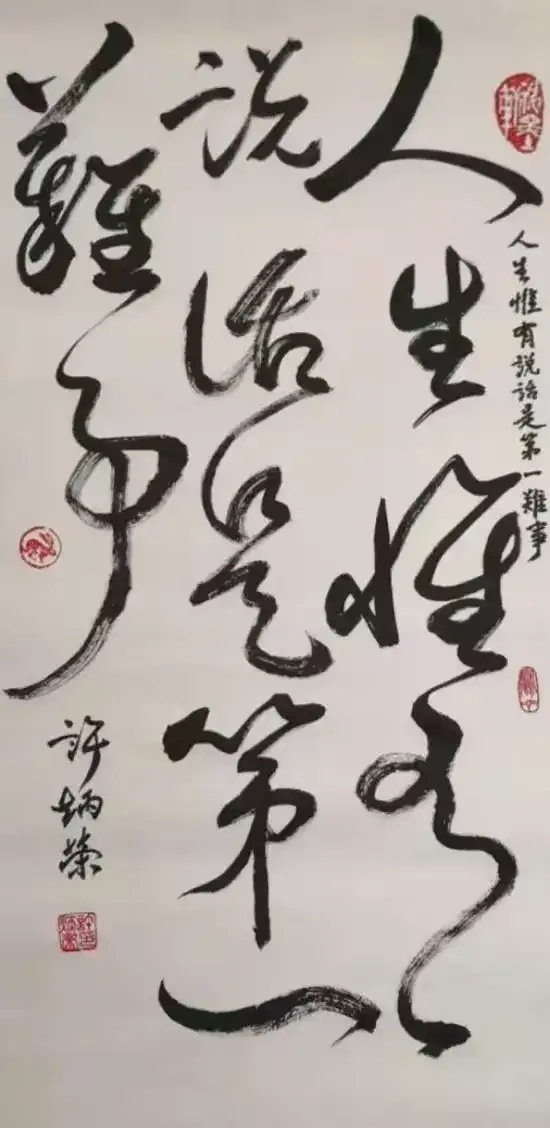 人生惟有说话是第一難事
人生惟有
说话是第一
難事
许炳荣